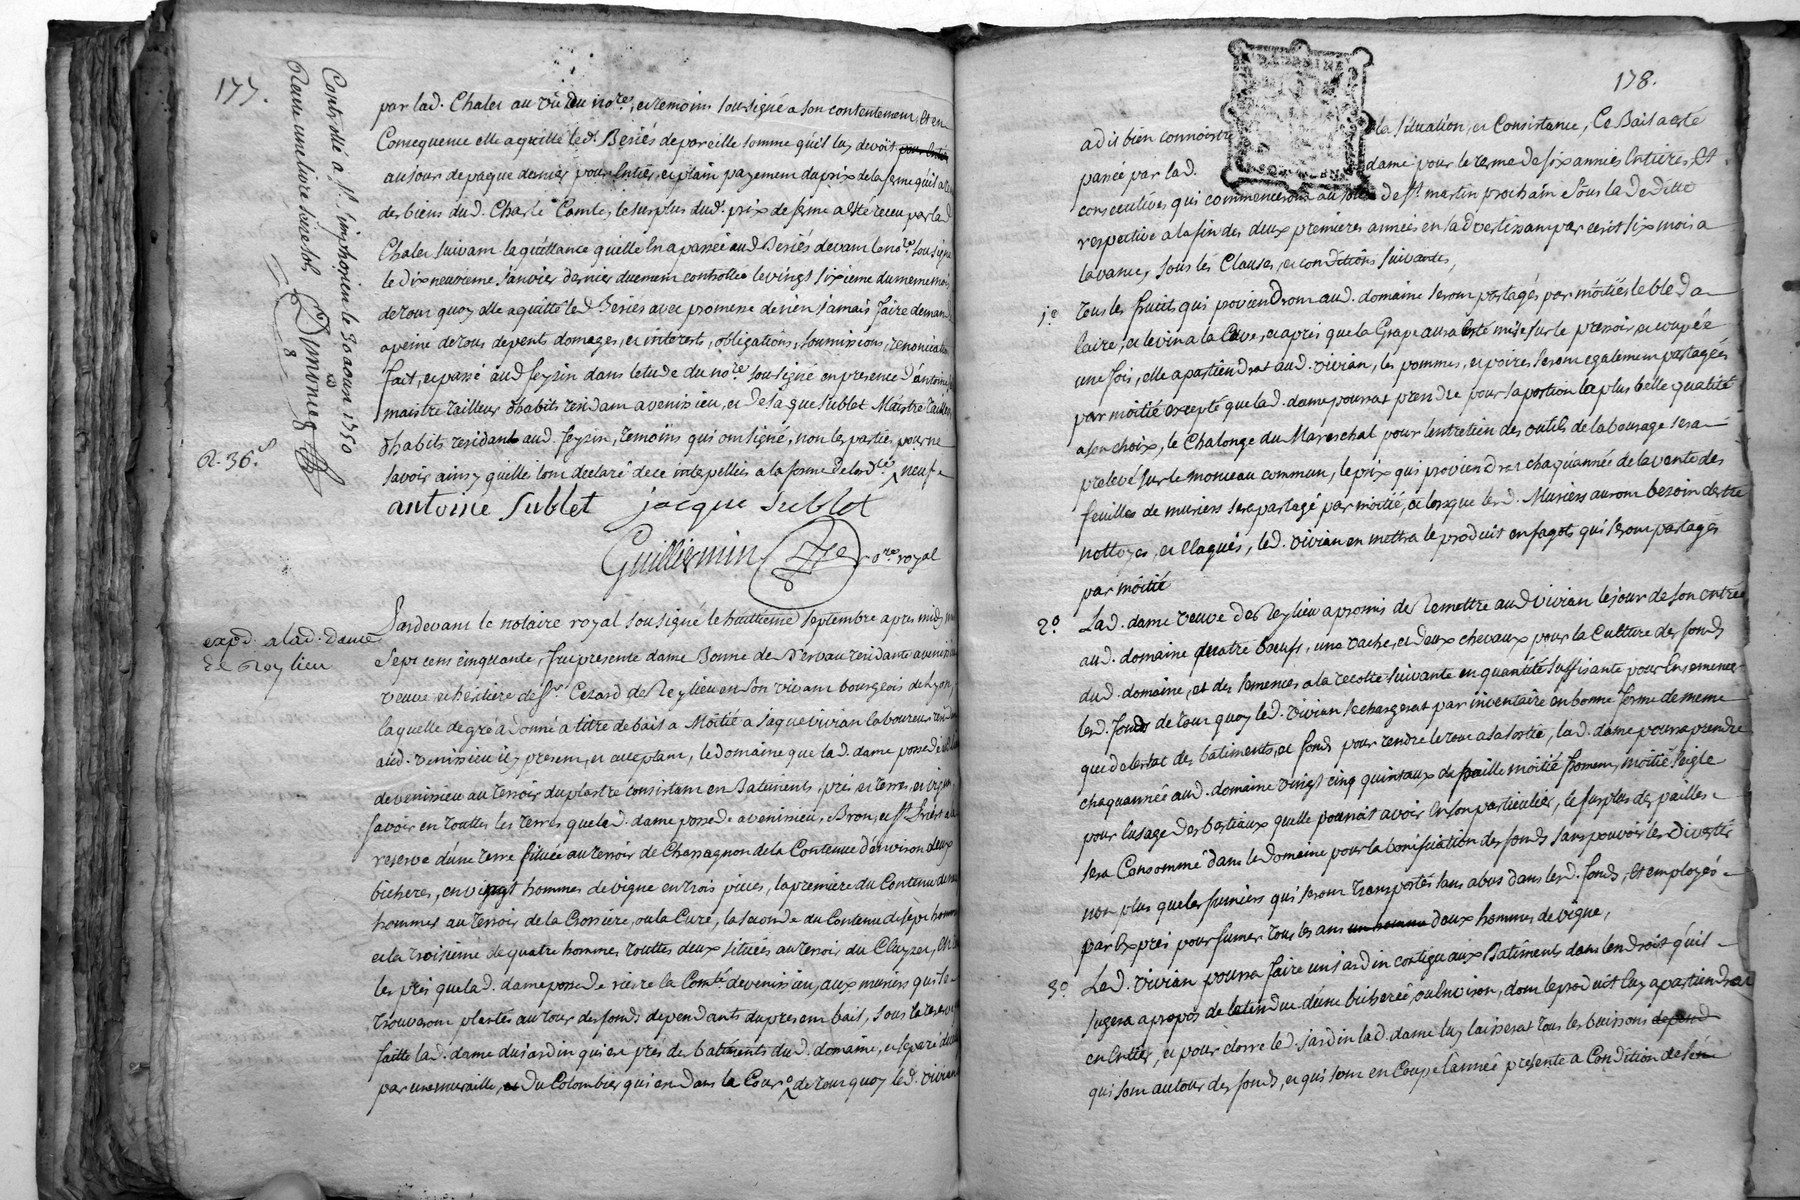 177.
Controllé a St. simphorien le 30 aoust 1750
Receu une livre seize sols Dumonier
R. 36.s
par lad. Chalet au vû du nore. et temoins sousigné a son contentement, et en
Consequence elle a quitté led. Beriés de pareille somme qu'il luy devoit
au jour de paque dernier pour entier, et plain payement du prix de la ferme qu'il a
des biens dud. Charle Comte, le surplus dud. prix de ferme a été receu par lad
Chalet suivant la quittance qu'elle en a passée aud Beriés devant le nore. sousigné
le dix neuvieme Janvier dernier duement controllée le vingt sixieme du meme moi
de tout quoy elle a quitté led Beriés avec promesse de rien jamais faire demande
a peine de tous depents domages, et interests, obligations, soumissions, renonciation
fait, et passé aud feyzin dans letude du nore. sousigné en presence d'antoine
maistre tailleur d'habits residant a venissieu, et de Jaque Sublet Maistre tailleur
d'habits residant aud. feyzin, temoins qui ont signé, non les parties pour ne
savoir ainsy qu'elle l'ont declaré de ce intepellées a la forme de lordce.
antoine Sublet jacque sublet
Guilliermin nore. royal
expd. a lad. dame
de Reylieu
Pardevant le notaire royal sousigné le huitieme septembre apres midy mil
sept cens cinquante, fut presente dame Bonne de residante a venissieu
veuve et heritiere de Sr. Cezard de Reylieu en son vivant bourgeois de Lyon,
laquelle de gré a donné a titre de bail a Moitié a Jaque vivian laboureur resid
aud. venissieu icy present, et acceptant, le domaine que lad. dame possede
de venissieu au terroir du plastre consistant en Batiments, prés, et terres, et vignes,
savoir en touttes les terres que lad. dame possede a venissieu, Bron, et St. Priest a la
reserve d'une terre située au terroir de Chassagnon de la Contenue d'environ deux
bicherés, en vingt hommes de vigne en trois pieces, la premiere du Contenu de
hommes au terroir de la Crosiere, ou la Cure, la seconde du Contenu de sept hommes
et la troisieme de quatre hommes touttes deux situées au terroir du Cluzer,
les prés que lad. dame possede riere la Comté. de venissieu, aux muriers qui se
trouveront plantés au tour des fonds dependants du present bail, sous la reserve
faitte lad. dame du jardin qui est prés des batiments dud. domaine, et separé d'iceux
par une muraille, et du Colombier qui est dans la Cour, de tout quoy led. vivian
178.
a dit bien connoistre la situation, et Consistance, Ce Bail a eté
passée par lad. dame pour le terme de six années entieres, et
consecutives, qui commenceront au jour de St. martin prochain sous la deditte
respective a la fin des deux premieres années en s'advertissant par ecrit six mois a
lavance, sous les Clauses, et conditions suivantes,
1o. Tous les fruits qui proviendront aud. domaine seront partagés par moitiés le bled a
laire, et le vin a la Cave, et aprés que la Grape aura eté mise sur le pressoir, et coupée
une fois, elle apartiendrat aud. vivian, les pommes, et poires seront egalement partagées
par moitié excepté que lad. dame pourrat prendre pour sa portion la plus belle qualité
a son choix, le Chalonge du Mareschal pour l'entretien des outils de labourage sera
prelevé sur le monceau commun, le prix qui proviendrat chaqu'année de la vente des
feuilles de muriers sera partagé par moitié, et lorsque led. Muriers auront bezoin destre
nottoyes, et elaqués, led. vivian en mettra le produit en fagots qui seront partagés
par moitié
2o. Lad. dame veuve de Reylieu a promis de Remettre aud vivian le jour de son entrée
aud. domaine quatre boeufs, une vache, et deux chevaux pour la Culture des fonds
dud. domaine, et des semences a la recolte suivante en quantité suffisante pour ensemencer
led. fonds de tout quoy led. vivian se chargerat par inventaire en bonne forme de meme
que de letat des batiments, et fonds pour rendre le tout a sa sortie, lad. dame pourra prendre
chaquannée aud. domaine vingt cinq quintaux de paille moitié froment, moitié seigle
pour lusage des bestiaux quelle pourroit avoir en son particulier, le surplus des pailles
sera Consommé dans le domaine pour la bonification des fonds sans pouvoir les divertir
non plus que les fumiers qui seront transportés sans abus dans led. fonds, et employés
par exprés pour fumer tous les ans un homme deux hommes de vigne,
3o. Led. vivian pourra faire un jardin contigu aux Batiments dans lendroit qu'il
jugera a propos de letendue d'une bicherée, ou environ, dont le produit luy apartiendrat
en entier, et pour clorre led. jardin lad. dame luy laisserat tous les buissons depend
qui sont autour des fonds, et qui sont en Coupe l'année presente a Condition de